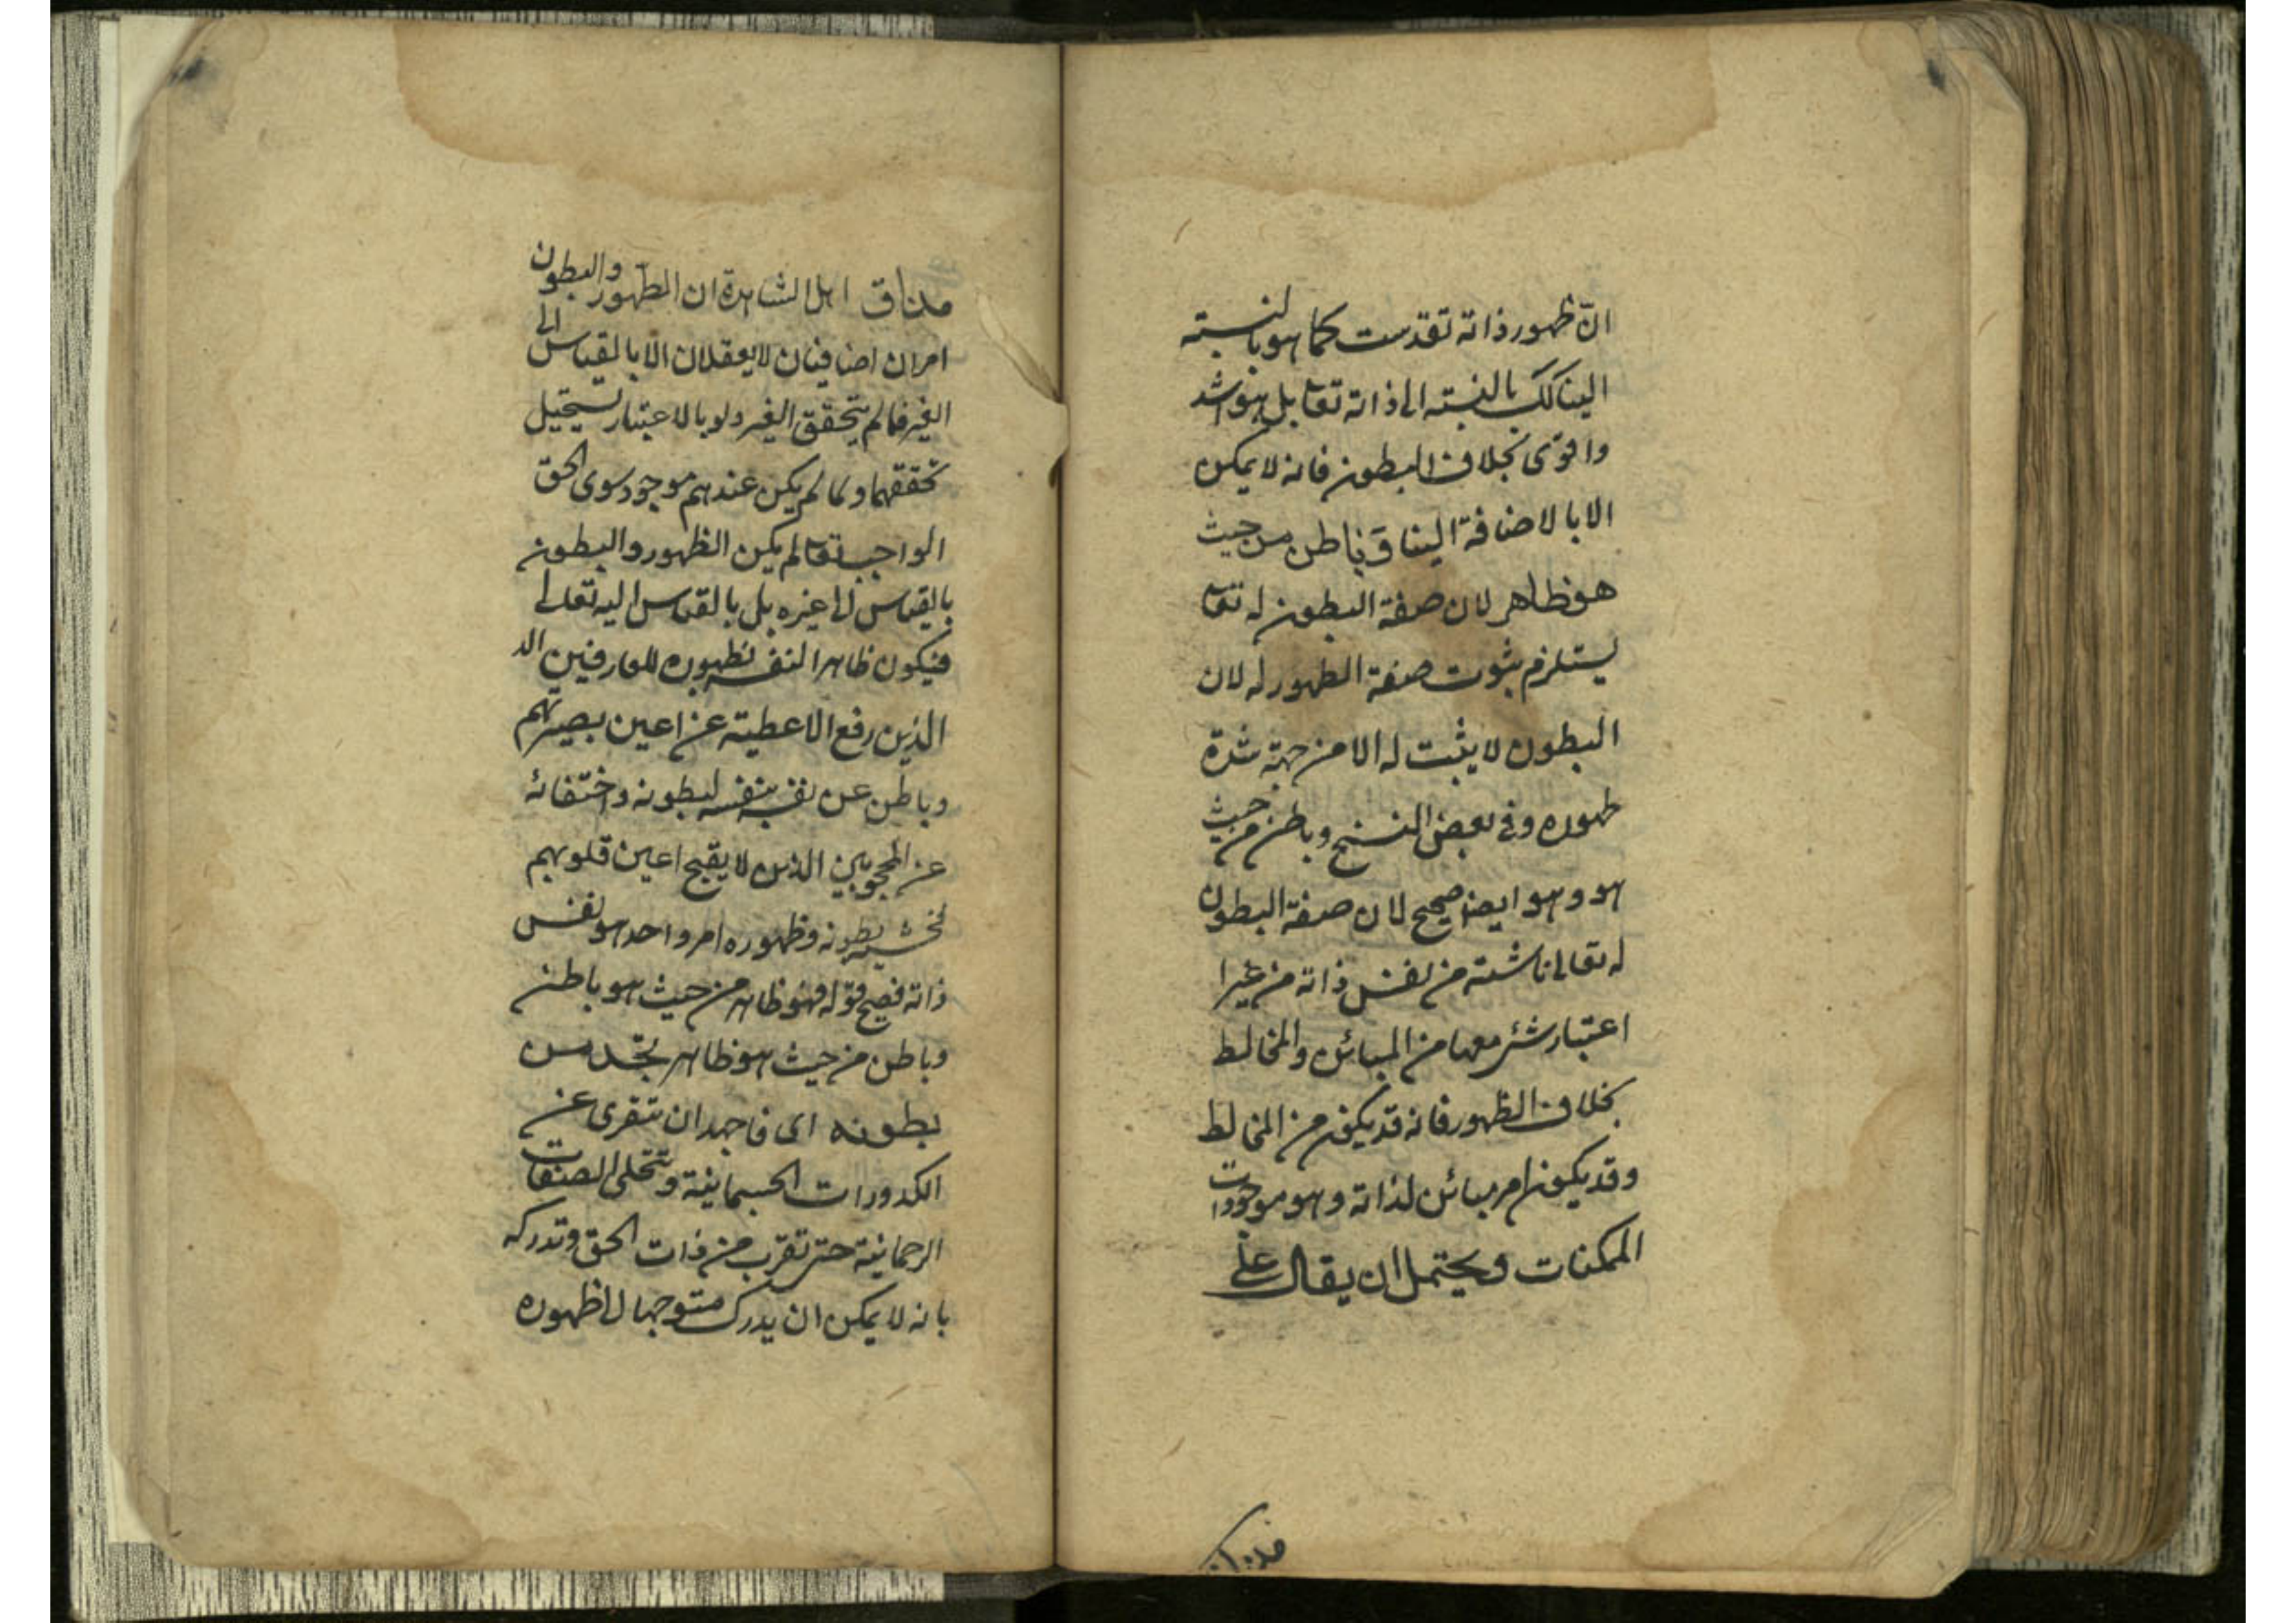 انّ ظهور ذاته تقدست كما هو بالنسبته
الينا كك بالنسبته الى ذاته تعا بل هو اشد
واقوى بخلاف البطون فانه لا يمكن
الا بالاضافة الينا ق باطن من حيث
هو ظاهر لان صفة البطون له تعا
يستلزم ثبوت صفة الظهور له لان
البطون لا يثبت له الا من جهة شدة
ظهوره وفي بعض النسخ وباطن من حيث
هو وهو ايضا صحيح لان صفة البطون
له تعالى ناشئة من نفس ذاته من غير ا
اعتبار شئ معها من المبائن والمخالط
بخلاف الظهور فانه قد يكون من المخالط
وقد يكون امر مبائن لذاته وهو موجودات
الممكنات ويحتمل ان يقال على
مذاق
مذاق اهل الشاهدة ان الظهور والبطون
امران اضافيان لا يعقلان الا بالقياس الى
الغير فما لم يتحقق الغير ولو بالاعتبار يستحيل
تحققهما ولما لم يكن عندهم موجود سوى الحق
الواجب تعا لم يكن الظهور والبطون
بالقياس الى غيره بل بالقياس اليه تعالى
فيكون ظاهرا لنفسه بظهوره للعارفين الذ
الذين رفع الاعطية عن اعين بصيرتهم
وباطن عن نفسه بنفسه لبطونه واختفائه
عن المحجوبين الذين لا يفتح اعين قلوبهم
بطونه وظهوره امر واحد هو نفس
ذاته فصح قوله فهو ظاهر من حيث هو باطن
وباطن من حيث هو ظاهر فخذ من
بطونه اى فاجهد ان تتعرى عن
الكدورات الجسمانية وتتحلى الصفات
الرحمانية حتى تقرب من ذات الحق وتدركه
بانه لا يمكن ان يدرك متوجها الى ظهوره